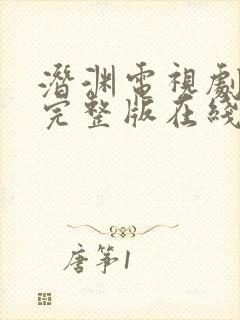 潛渊電視劇
完整版在綫
唐筝1